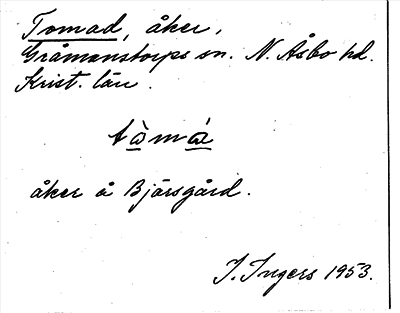 Tomad, åker,
Gråmanstorps sn. N. Åsbo hd.
Krist. län.
tòmá
åker å Bjärsgård.
I. Ingers 1953.